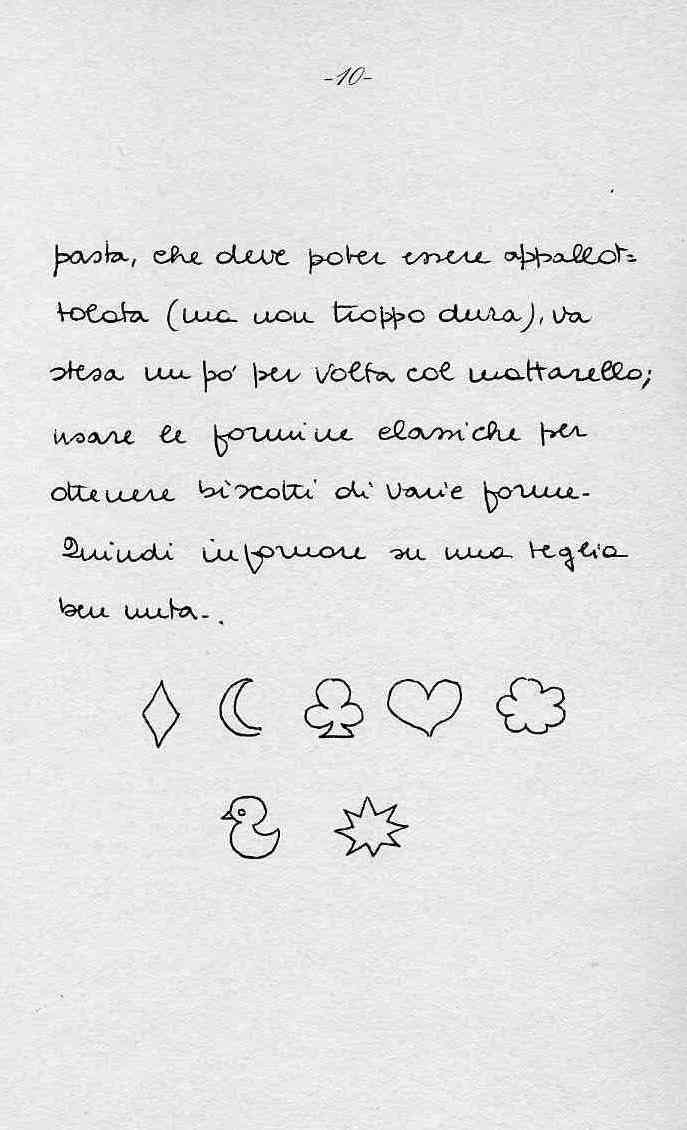 -10-
pasta, che deve poter essere appallot=
tolata (ma non troppo dura), va
stesa un pó per volta col mattarello;
usare le formine classiche per
ottenere biscotti di varie forme-
Quindi infornare su una teglia
ben unta-.